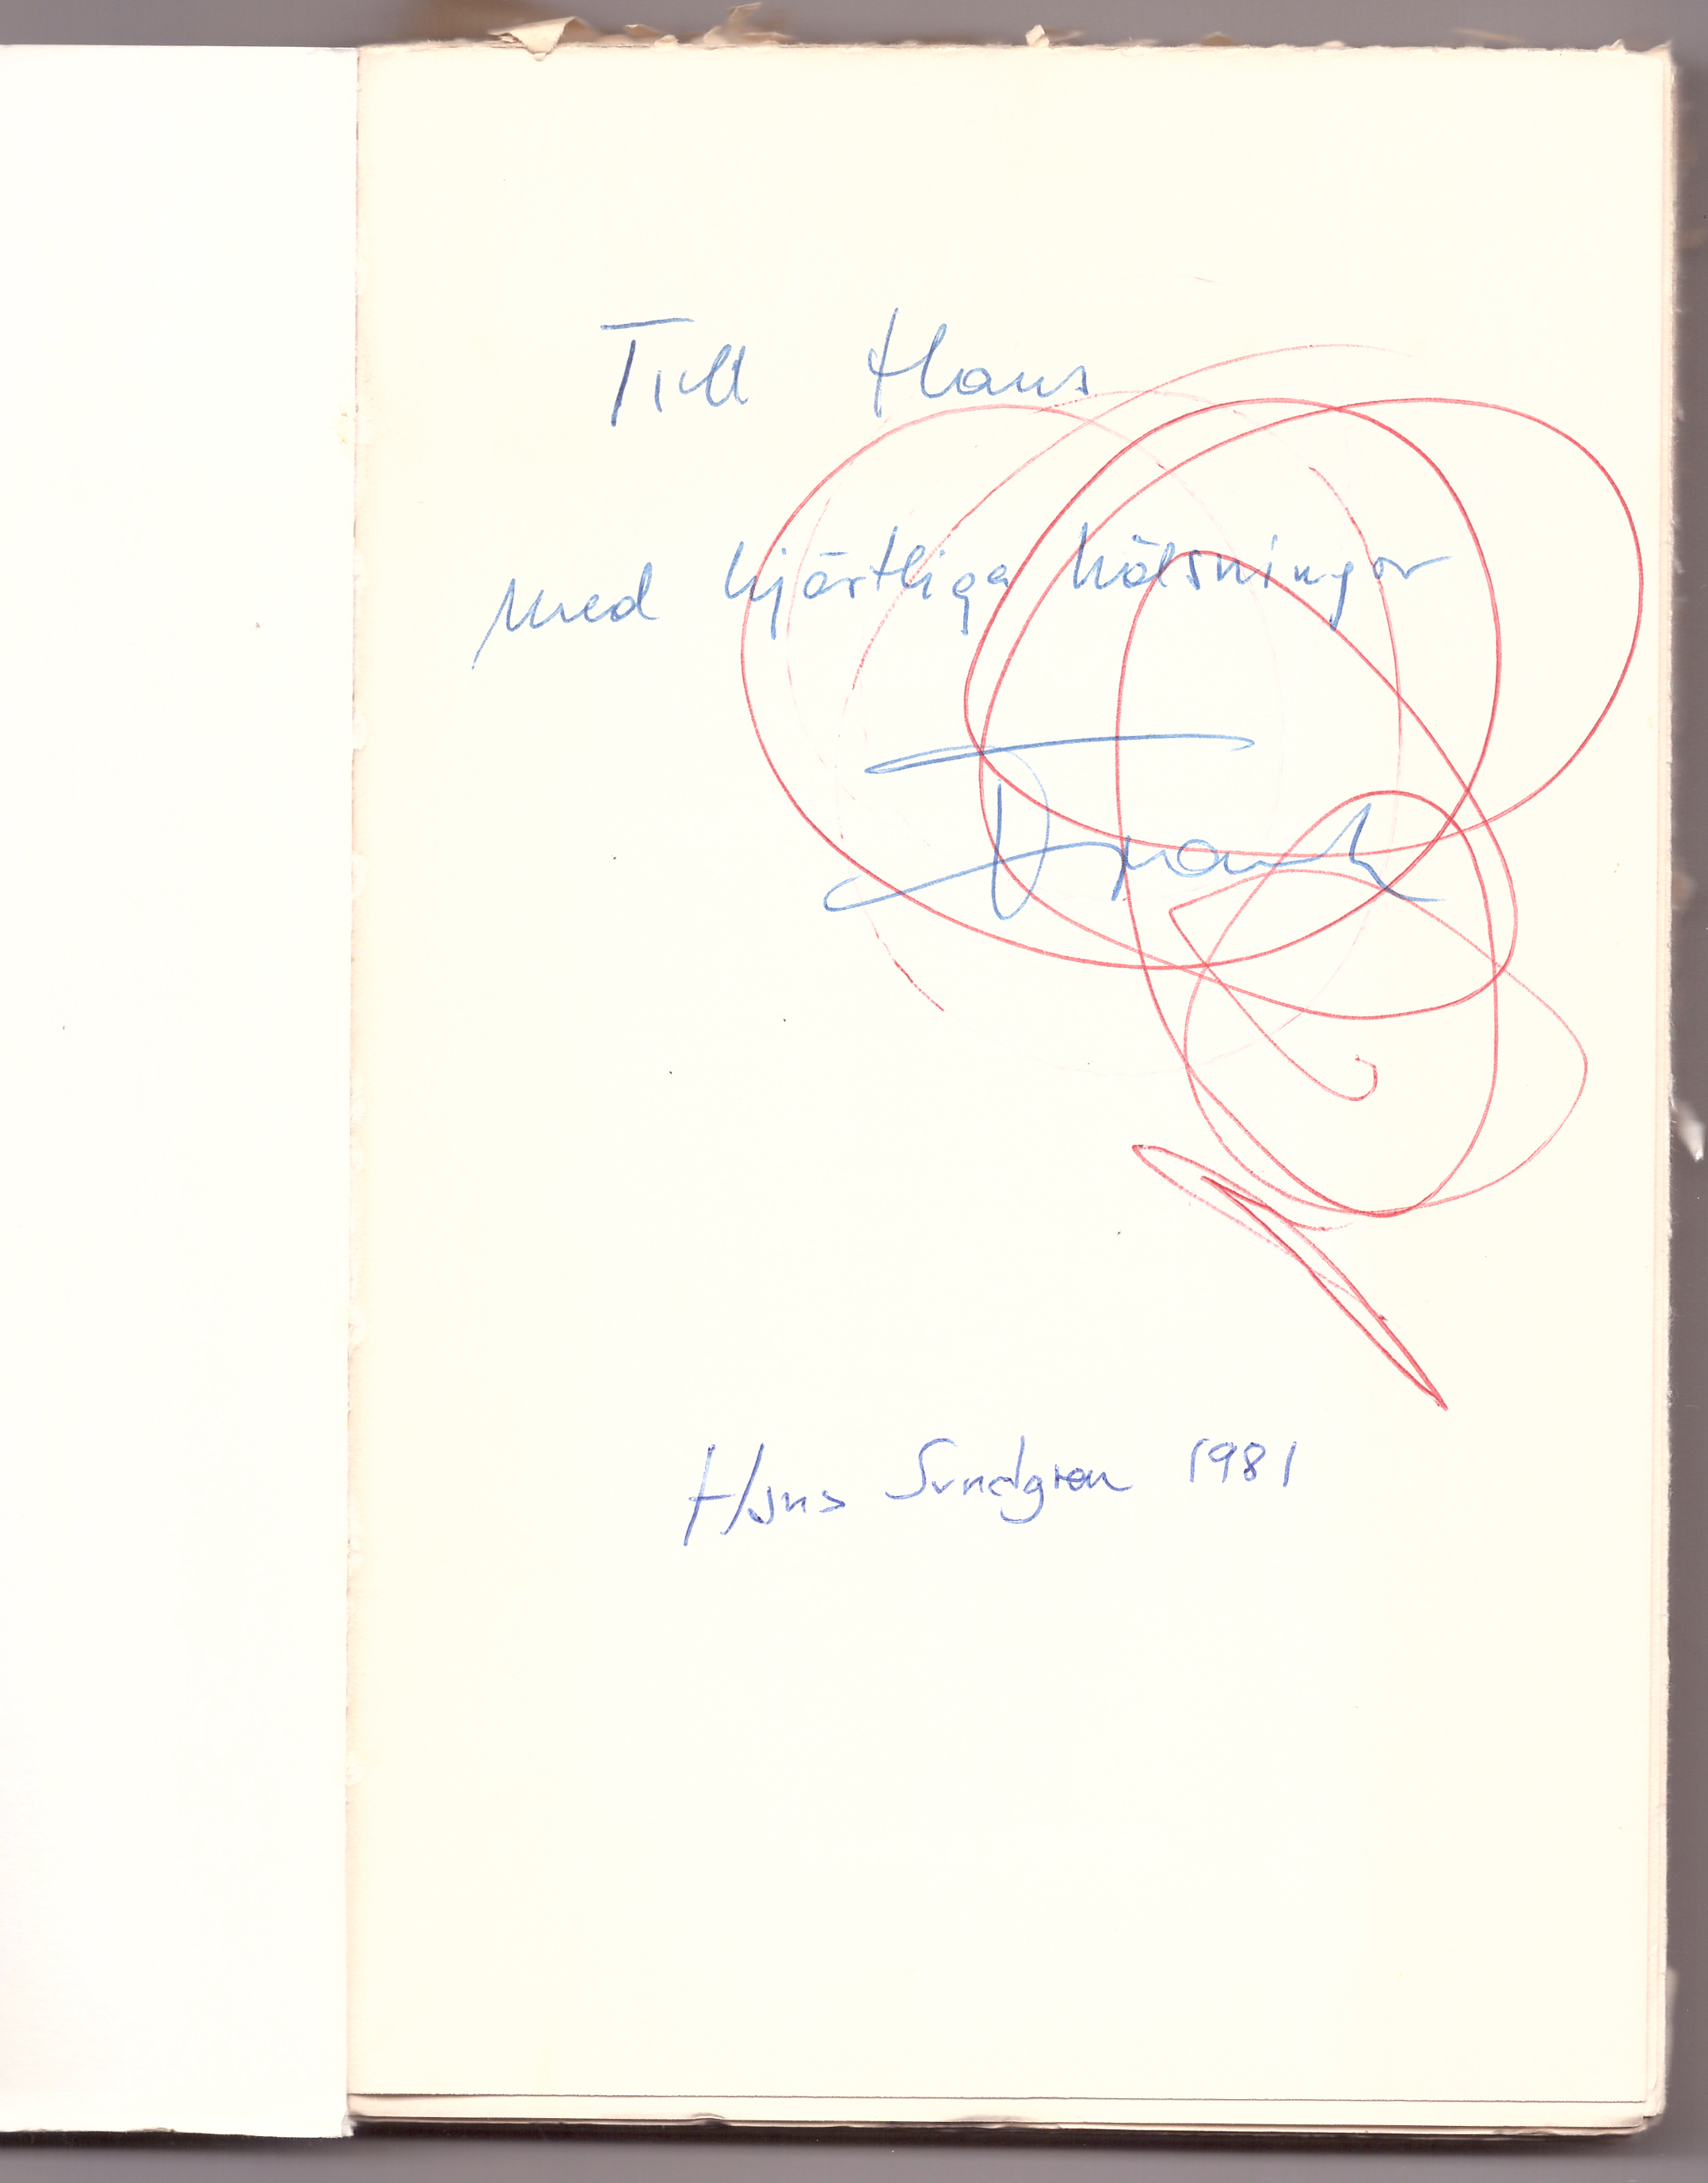 Till Hans
med hjärtliga hälsningar
Frank
Hans Sundgren 1981